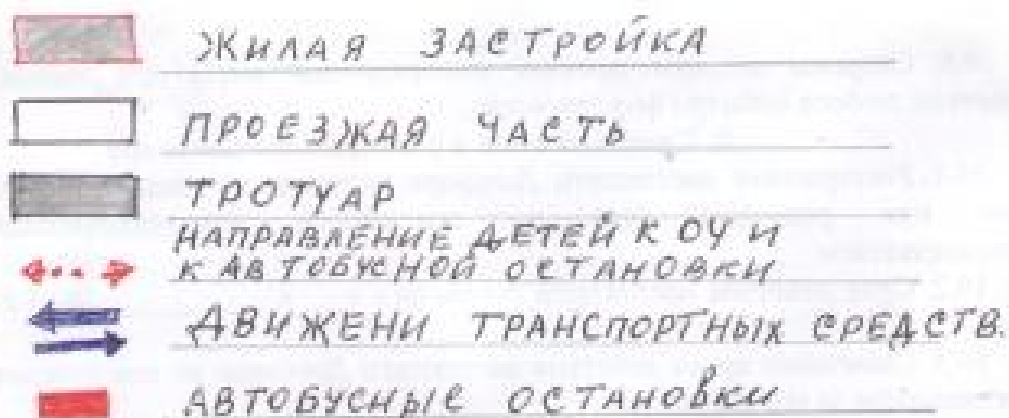 ЖИЛАЯ ЗАСТРОЙКА
ПРОЕЗЖАЯ ЧАСТЬ
ТРОТУАР
НАПРАВЛЕНИЕ ДЕТЕЙ К ОУ И
К АВТОБУСНОЙ ОСТАНОВКИ
ДВИЖЕНИ ТРАНСПОРТНЫХ СРЕДСТВ.
АВТОБУСНЫЕ ОСТАНОВКИ